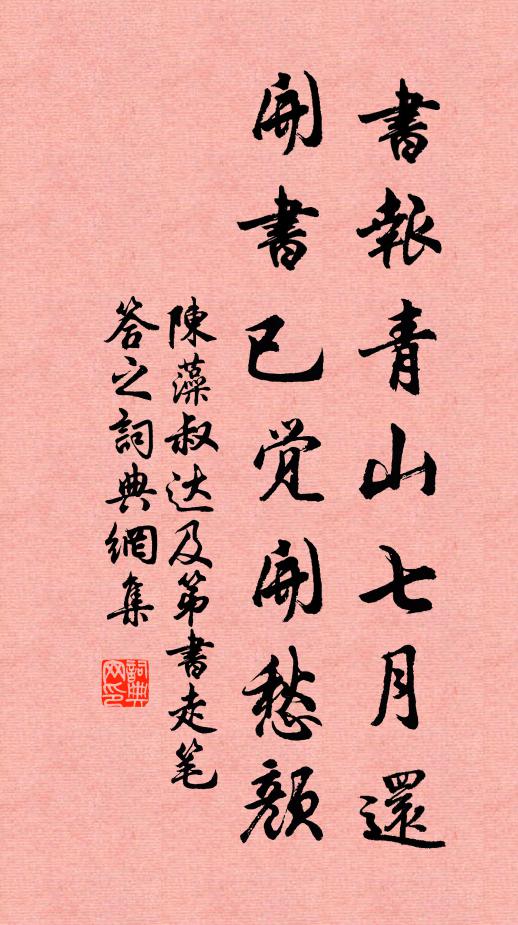 書報青山七月還
開書已觉開愁顔
陳藻叔达及第書走笔
答之詞典網集
詞典網印